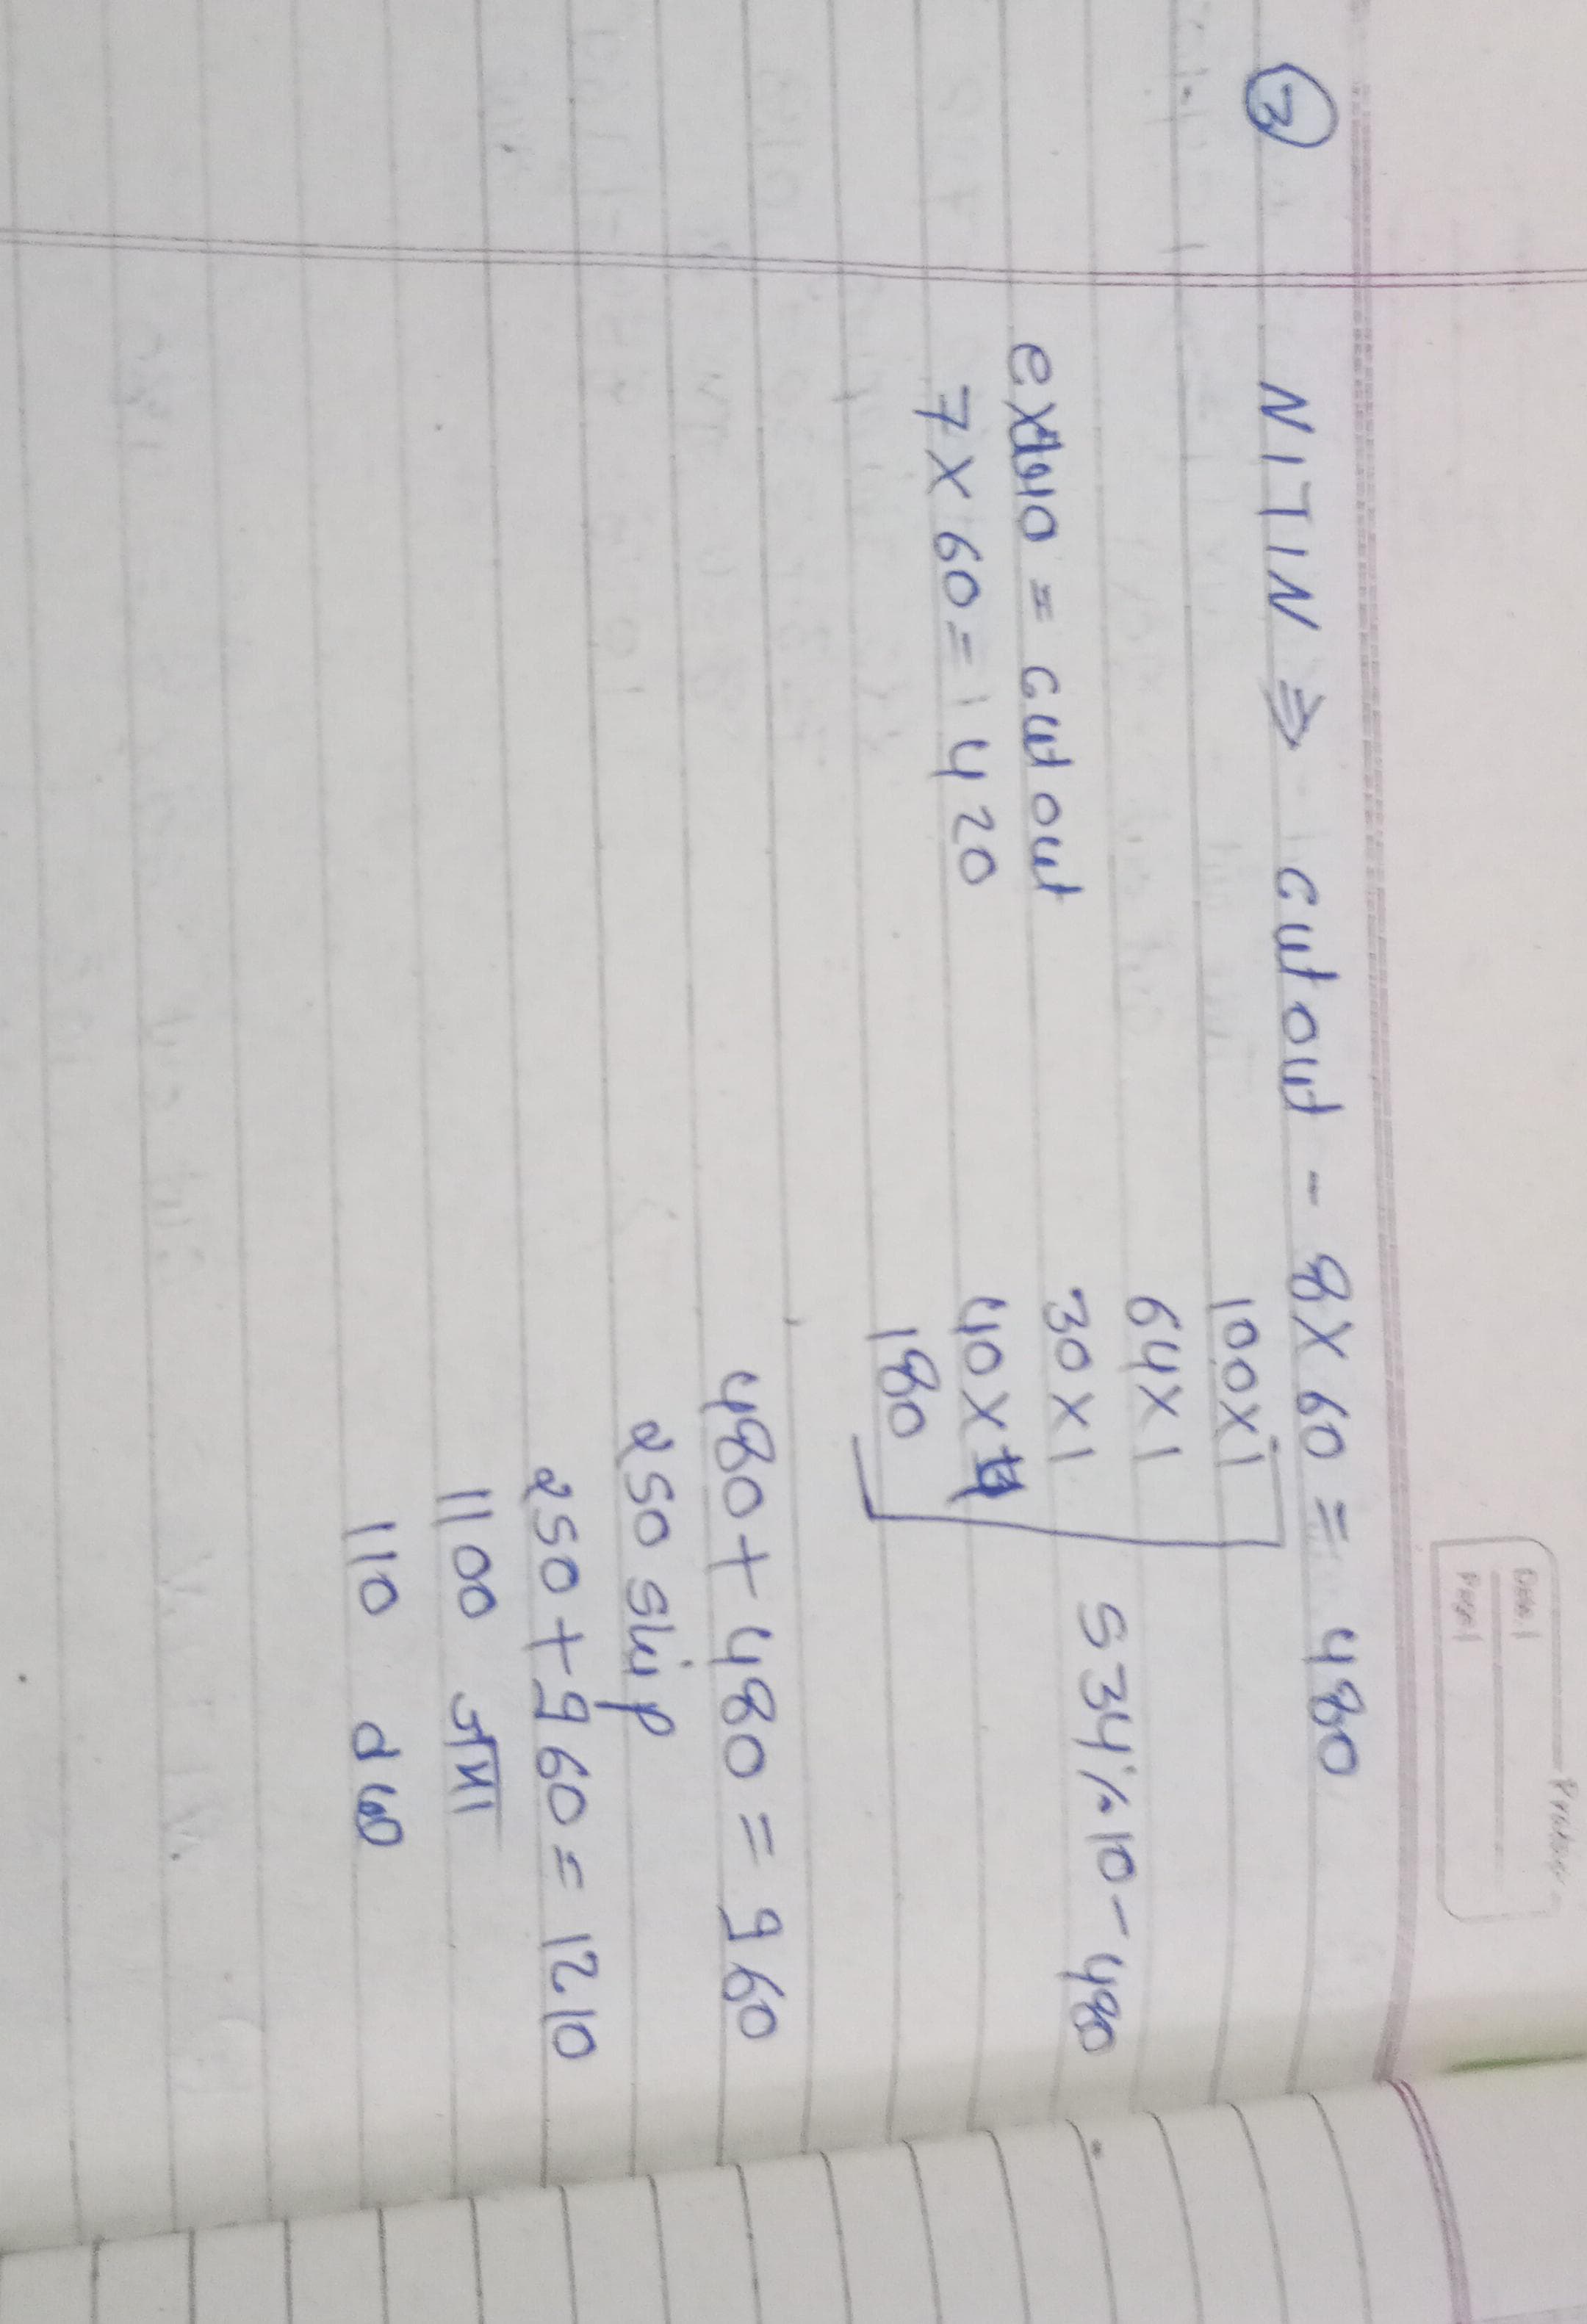 Date |
Page |
③ NITIN ⇒ cutout - 8X60 = 480
100X1
64X1
30X1
40X4
180
534%10-480
extra = cutout
7X60=1420
480+480=960
250 slip
250+960=1210
1100 जमा
110 due